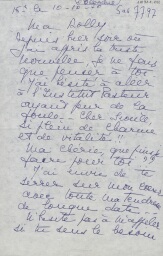 16. le 10-10-
7797
Ma Dolly
Depuis hier soir où
j'ai appris la triste
nouvelle, je ne fais
que penser à toi
J'ai hésité à aller
à l'Institut Pasteur
ayant peur de la
foule. Cher
si plein de charme
et de vitalité!!
Ma Chérie, que puis-je
faire pour toi??
J'ai envie de te
serrer sur mon coeur
avec toute ma tendresse
de longue date
N'hésite pas à m'appeler
si tu sens le besoin